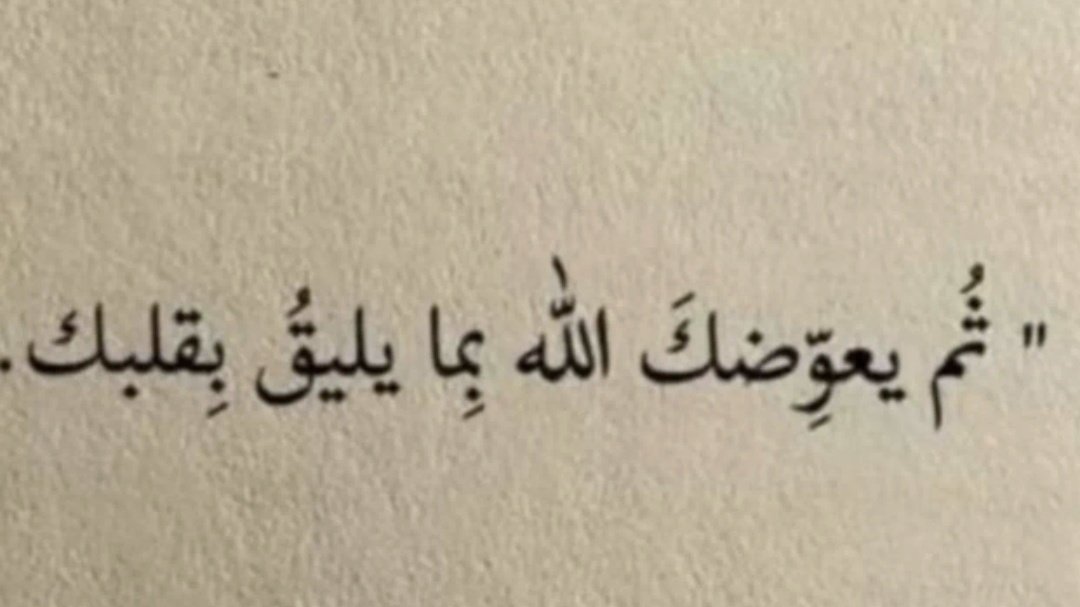 " ثُم يعوِّضكَ اللّٰه بِما يليقُ بِقلبك.